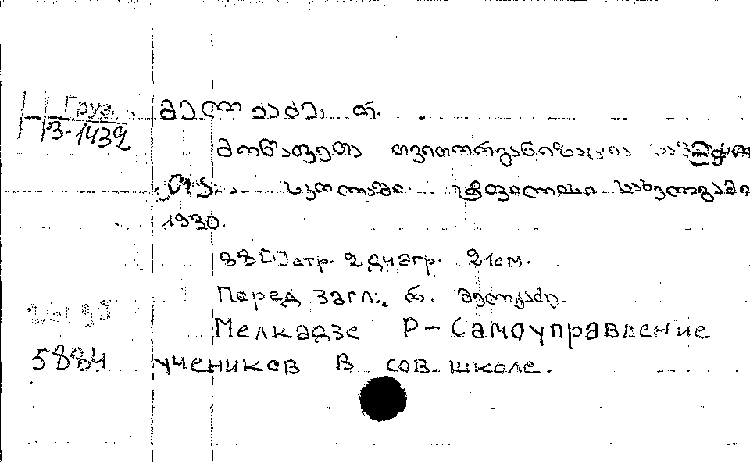 Груз. მელქაძე, რ.
3-1432
მოწაფეთა თვითორგანიზაცია
სკოლაში. ტფილისი სახელგამი
1930.
88 стр. 2 диагр. 21 см.
Перед загл.: რ. მელქაძე.
Мелкадзе Р - Самоуправление
5884 учеников в сов. школе.